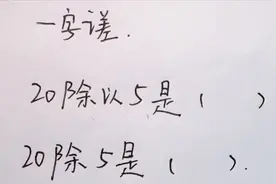 一字差.
20除以5是（ ）
20除5是（ ）.